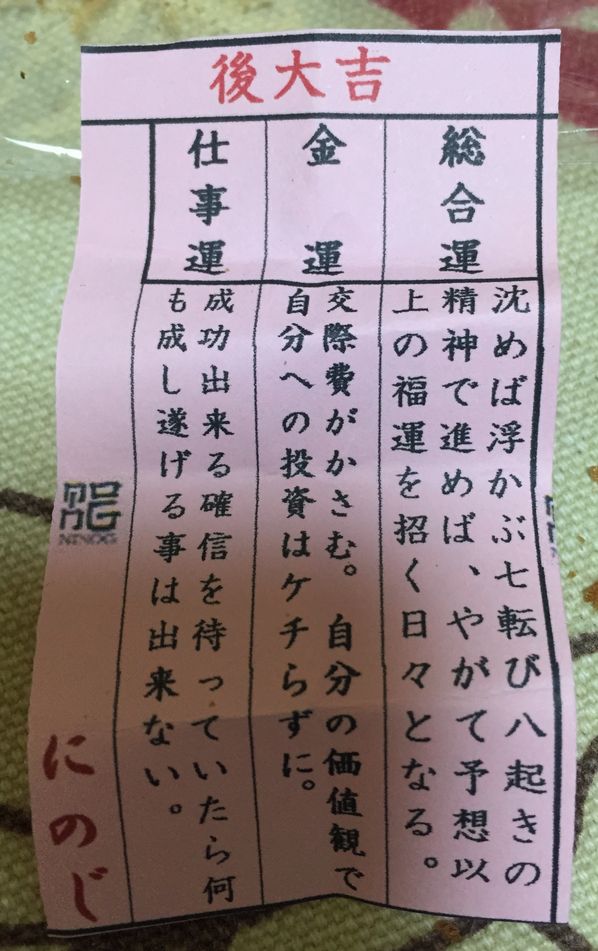 後大吉
総合運
沈めば浮かぶ七転び八起きの
精神で進めば、やがて予想以
上の福運を招く日々となる。
金運
交際費がかさむ。自分の価値観で
自分への投資はケチらずに。
仕事運
成功出来る確信を待っていたら何
も成し遂げる事は出来ない。
NINOG
にのじ